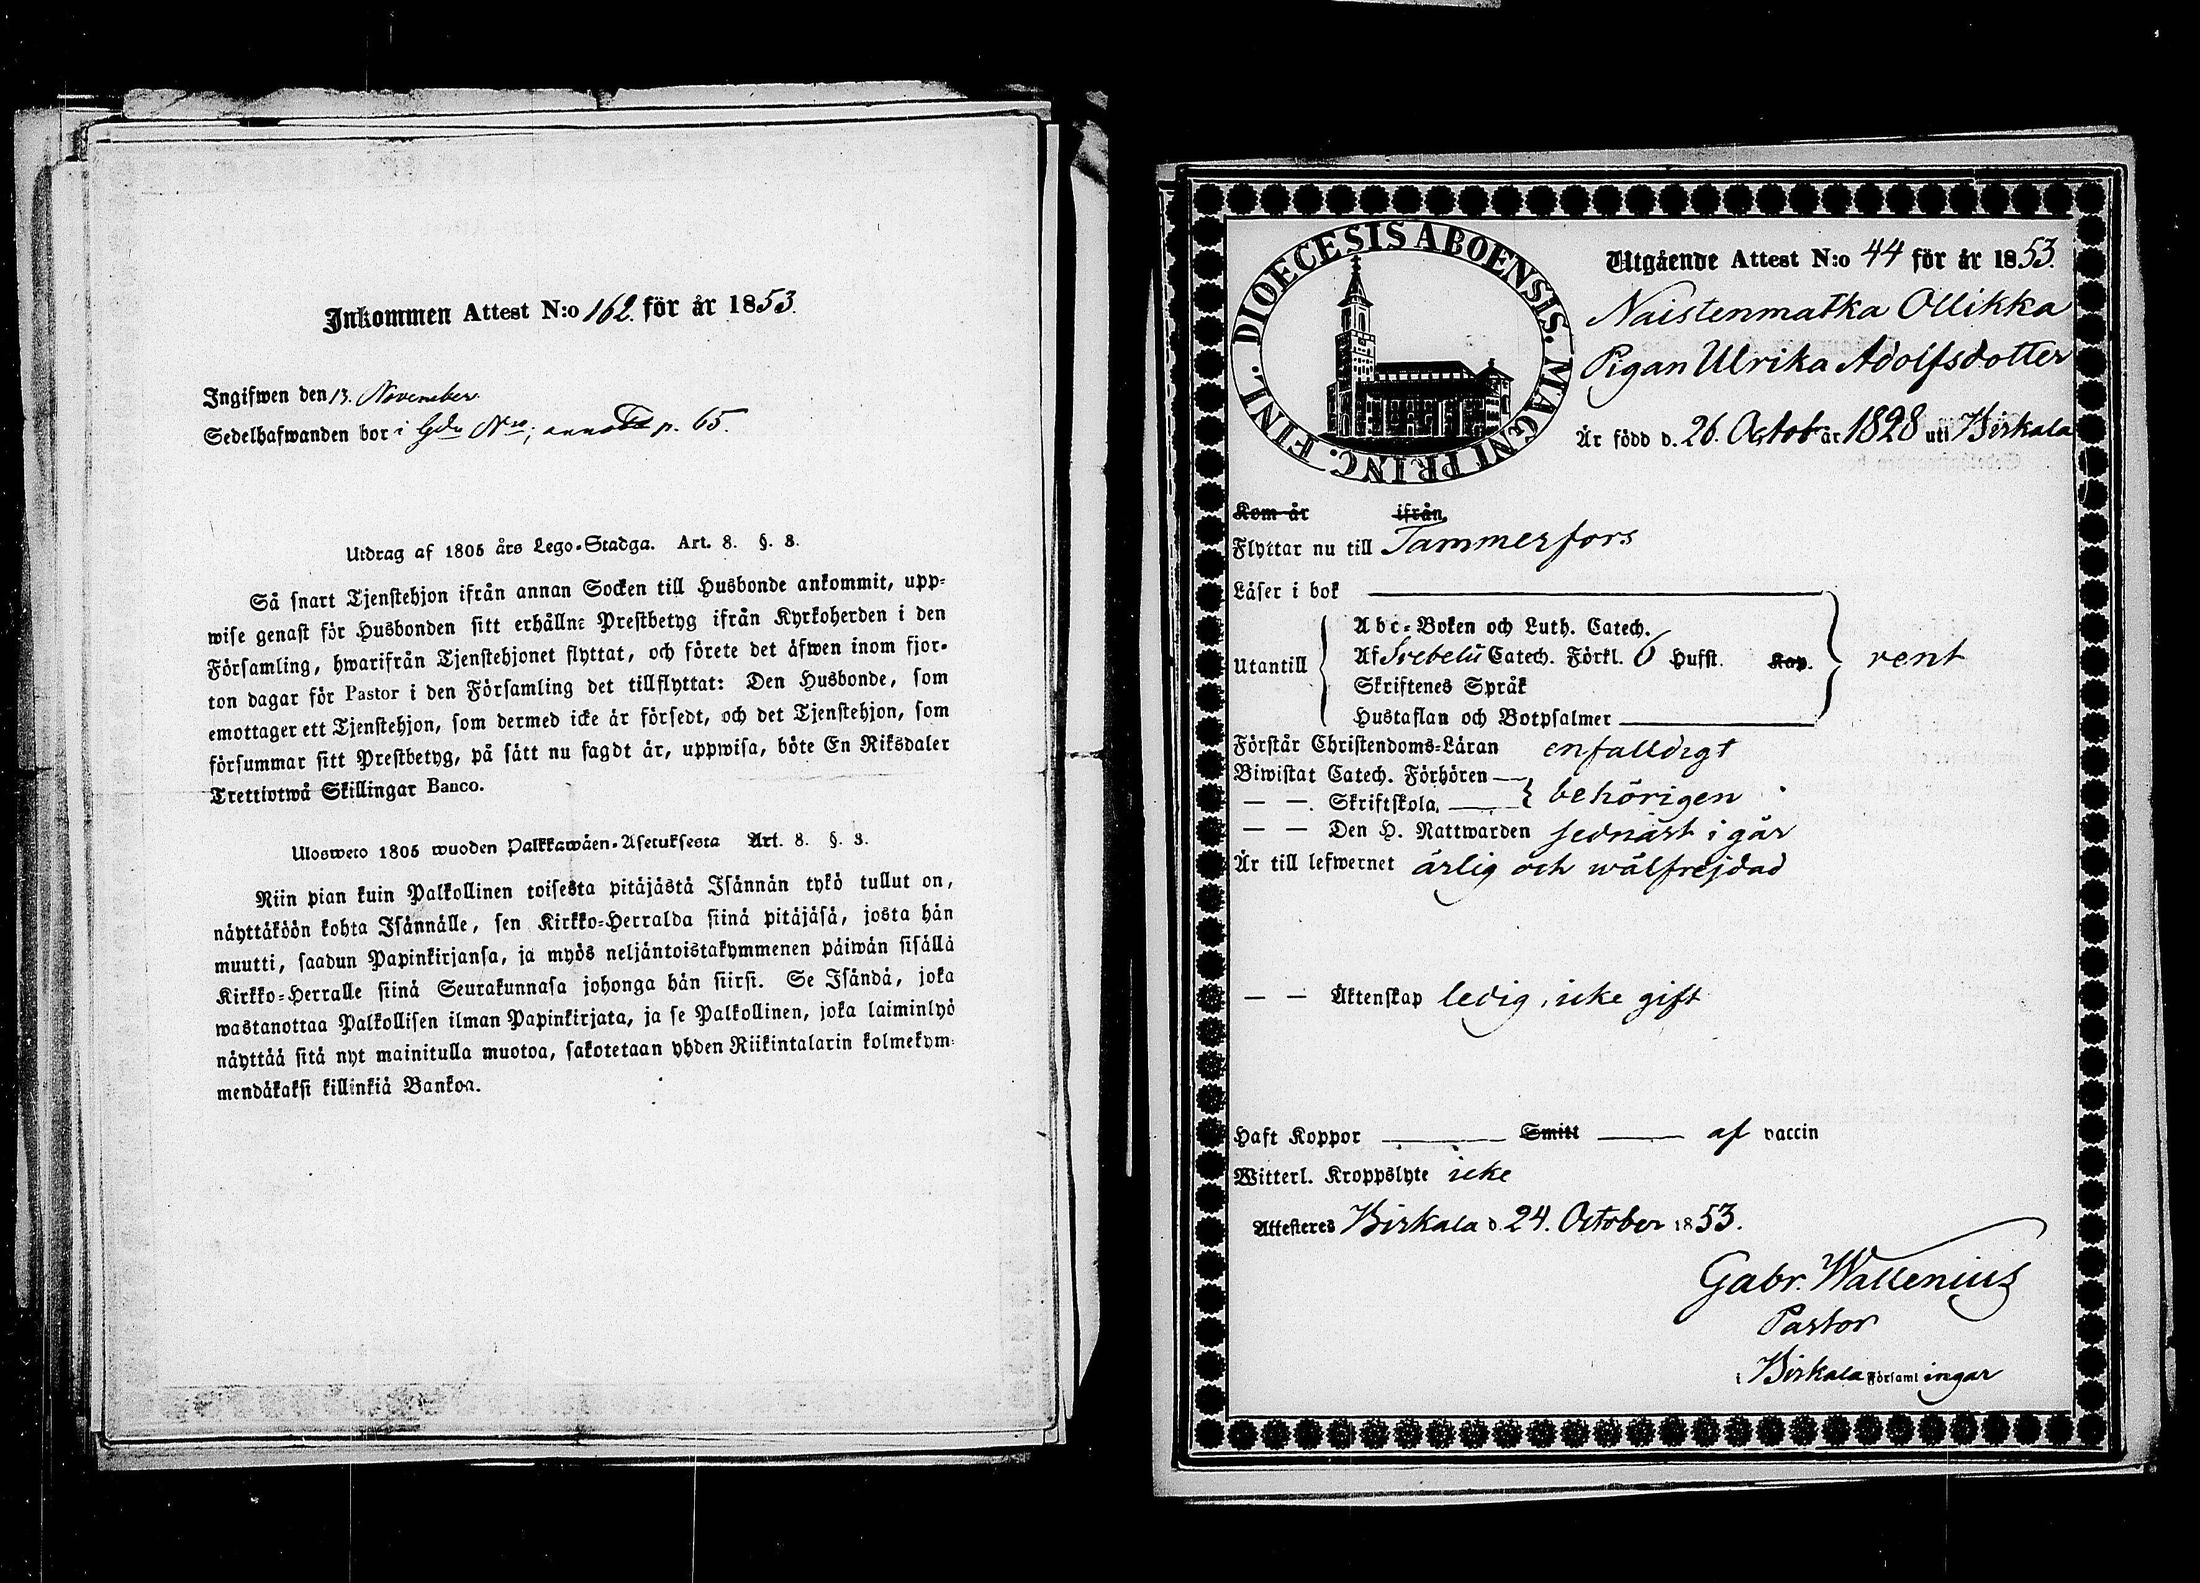 Inkommen Attest N:o 162. för år 1853.
Ingifwen den 13. November.
Sedelhafwanden bor i p. 65.
Utdrag af 1805 års Lego-Stadga. Art. 8. §. 3.
Så snart Tjenstehjon ifrån annan Socken till Husbonde ankommit, upp-
wise genast för Husbonden sitt erhållne Prestbetyg ifrån Kyrkoherden i den
Församling, hwarifrån Tjenstehjonet flyttat, och förete det äfwen inom fjor-
ton dagar för Pastor i den Församling det tillflyttat: Den Husbonde, som
emottager ett Tjenstehjon, som dermed icke är försedt, och det Tjenstehjon, som
försummar sitt Prestbetyg, på sätt nu sagdt är, uppwisa, böte En Riksdaler
Trettiotwå Skillingar Banco.
Ulosweto 1805 wuoden Palkkawäen-Asetuksesta Art. 8. §. 3.
Niin pian kuin Palkollinen toisesta pitäjästä Isännän tykö tullut on,
näyttäköön kohta Isännälle, sen Kirkko-Herralda siinä pitäjäsä, josta hän
muutti, saadun Papinkirjansa, ja myös neljäntoistakymmenen päiwän sisällä
Kirkko-Herralle siinä Seurakunnasa johonga hän siirsi. Se Isändä, joka
wastanottaa Palkollisen ilman Papinkirjata, ja se Palkollinen, joka laiminlyö
näyttää sitä nyt mainitulla muotoa, sakotetaan yhden Riikintalarin kolmekym-
mendäkaksi killinkiä Bankoa.
DIOECESIS ABOENSIS. MAGNI PRINC. FINL.
Utgående Attest N:o 44 för år 1853.
Naistenmatka Ollikka
Pigan Ulrika Adolfsdotter
Är född d. 26. Octob år 1828 uti Birkala
Kom år ifrån
Flyttar nu till Tammerfors
Läser i bok
Utantill
Abc-Boken och Luth. Catech.
Af Svebelii Catech. Förkl. 6 Hufst. Kap.
Skriftenes Språk
Hustaflan och Botpsalmer
rent
Förstår Christendoms-Läran enfalldigt
Biwistat Catech. Förhören
— — Skriftskola. behörigen
— — Den H. Nattwarden sednast i går
Är till lefwernet ärlig och wälfrejdad
— — Äktenskap ledig, icke gift
Haft Koppor Smitt af vaccin
Witterl. Kroppslyte icke
Attesteres Birkala d. 24. October 1853.
Gabr. Wallenius
Pastor
i Birkala Församlingar